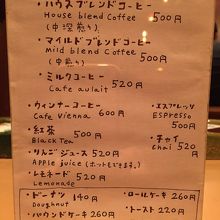 ・ハウスブレンドコーヒー
House blend Coffee
(中深煎り) 500円
・マイルドブレンドコーヒー
mild blend Coffee
(中煎り) 500円
・ミルクコーヒー
Cafe aulait 520円
・ウィンナーコーヒー
Cafe Vienna 600円
・エスプレッソ
ESPresso 500円
・紅茶
Black Tea 500円
・チャイ
Chai 520円
・リンゴジュース 520円
Apple juice (ホットもできます)
・レモネード 520円
Lemonade
・ドーナツ 140円
Doughnut
・ロールケーキ 260円
・パウンドケーキ 260円
・トースト 220円